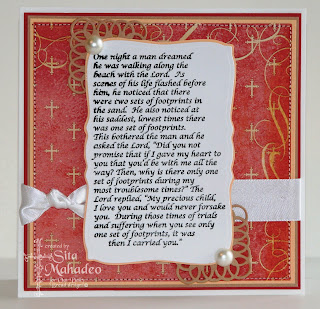 One night a man dreamed
he was walking along the
beach with the Lord. As
scenes of his life flashed before
him, he noticed that there
were two sets of footprints in
the sand. He also noticed at
his saddest, lowest times there
was one set of footprints.
This bothered the man and he
asked the Lord, "Did you not
promise that if I gave my heart to
you that you'd be with me all the
way? Then, why is there only one
set of footprints during my
most troublesome times?" The
Lord replied, "My precious child,
I love you and would never forsake
you. During those times of trials
and suffering when you see only
one set of footprints, it was
then I carried you."
created by
Sita
Mahadeo
for Our Daily
Bread designs